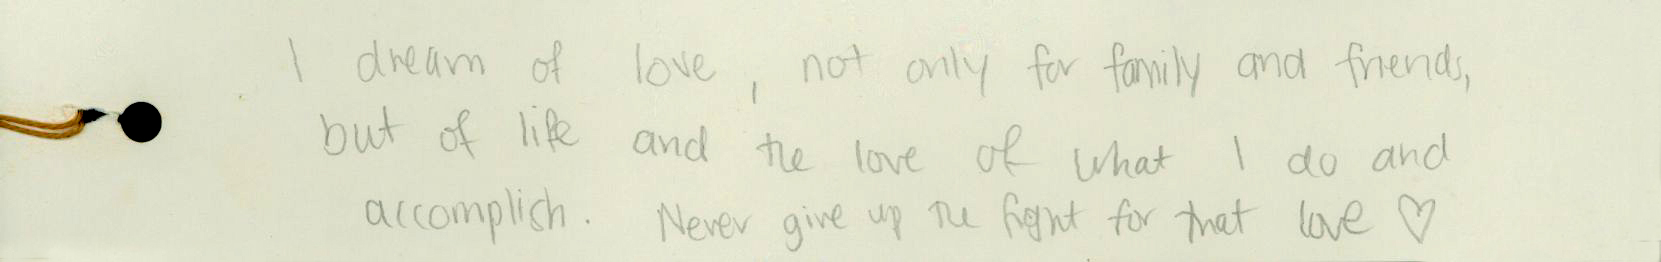 I dream of love, not only for family and friends,
but of life and the love of what I do and
accomplish. Never give up the fight for that love ♡